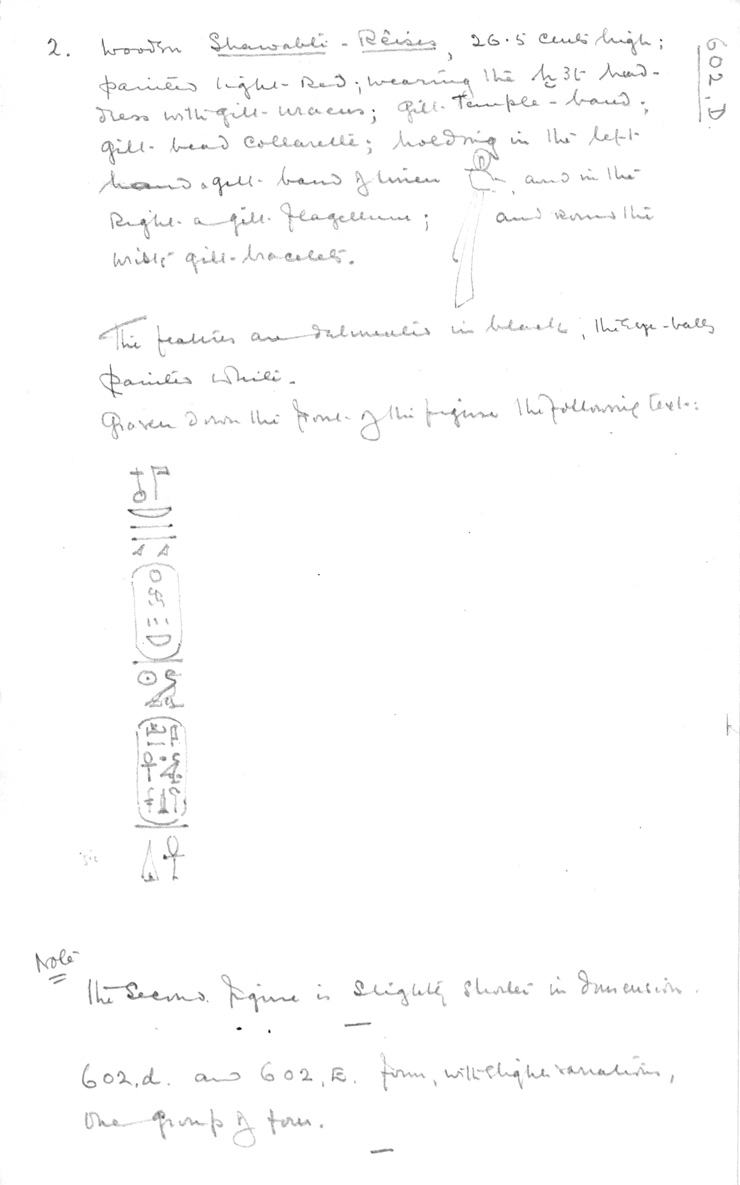 602.D.
2. Wooden Shawabti - Rêises, 26.5 cents high;
painted light-red; wearing the ḫꜣt head-
dress with gilt-uraeus; gilt-temple-band;
gilt-bead collarette; holding in the left
hand a gilt-band of linen, and in the
Right-a gilt-flagellum; and round the
wrists gilt-bracelets.
The features are delineated in black, the eye-balls
painted white.
Graven down the front-of the figure the following text-:
sic
Note
The Second figure is slightly shorter in dimension.
602,d. and 602,E. form, with slight variations,
one group of four.